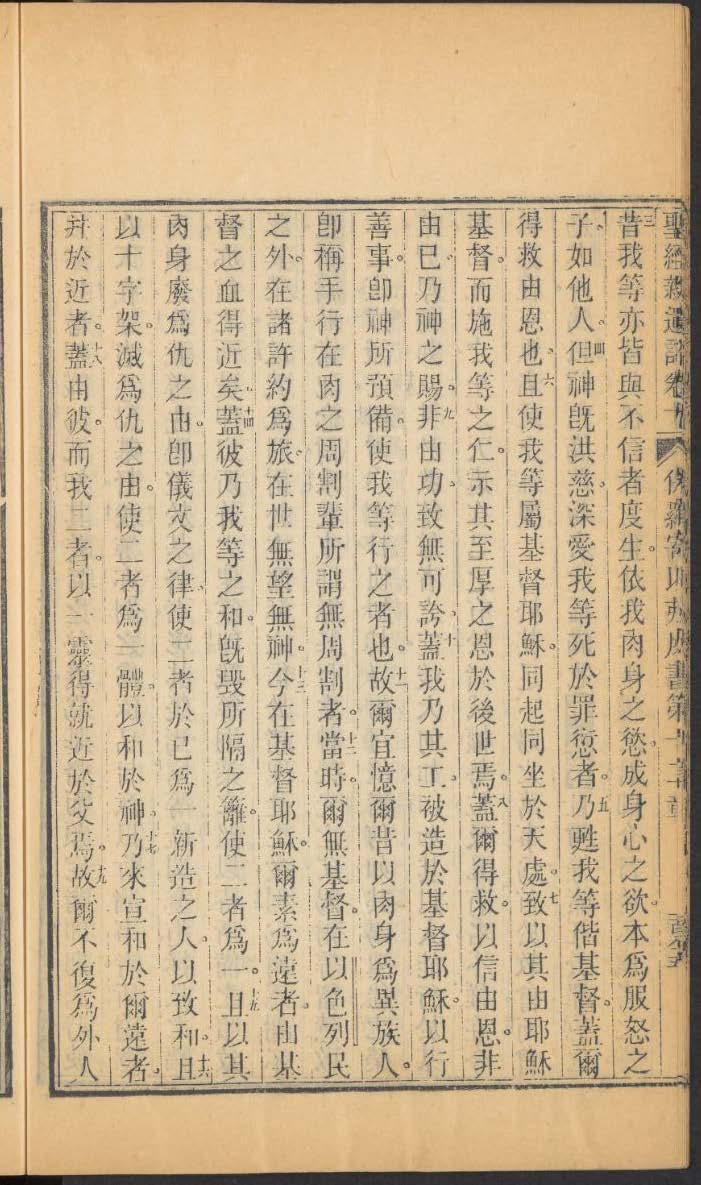 聖經新遺詔卷 保羅寄以弗所書第二章
三昔我等亦皆與不信者度生。依我肉身之慾。成身心之欲。本為服怒之
子。如他人。四但神旣洪慈。深愛我等死於罪愆者。五乃甦我等偕基督。蓋爾
得救由恩也。六且使我等屬基督耶穌。同起同坐於天處。七致以其由耶穌
基督。而施我等之仁。示其至厚之恩於後世焉。八蓋爾得救。以信由恩。非
由已。乃神之賜。九非由功。致無可誇。十蓋我乃其工。被造於基督耶穌。以行
善事。卽神所預備。使我等行之者也。十一故爾宜憶爾昔以肉身為異族人。
卽稱手行在肉之周割輩所謂無周割者。十二當時。爾無基督。在以色列民
之外。在諸許約為旅。在世無望無神。十三今在基督耶穌。爾素為遠者。由基
督之血得近矣。十四蓋彼乃我等之和。旣毀所隔之籬。使二者為一。十五且以其
肉身廢為仇之由。卽儀文之律。使二者於已為一新造之人。以致和。十六且
以十字架。滅為仇之由。使二者為一體。以和於神。十七乃來宣和於爾遠者。
幷於近者。十八蓋由彼。而我二者。以一靈得就近於父焉。十九故爾不復為外人